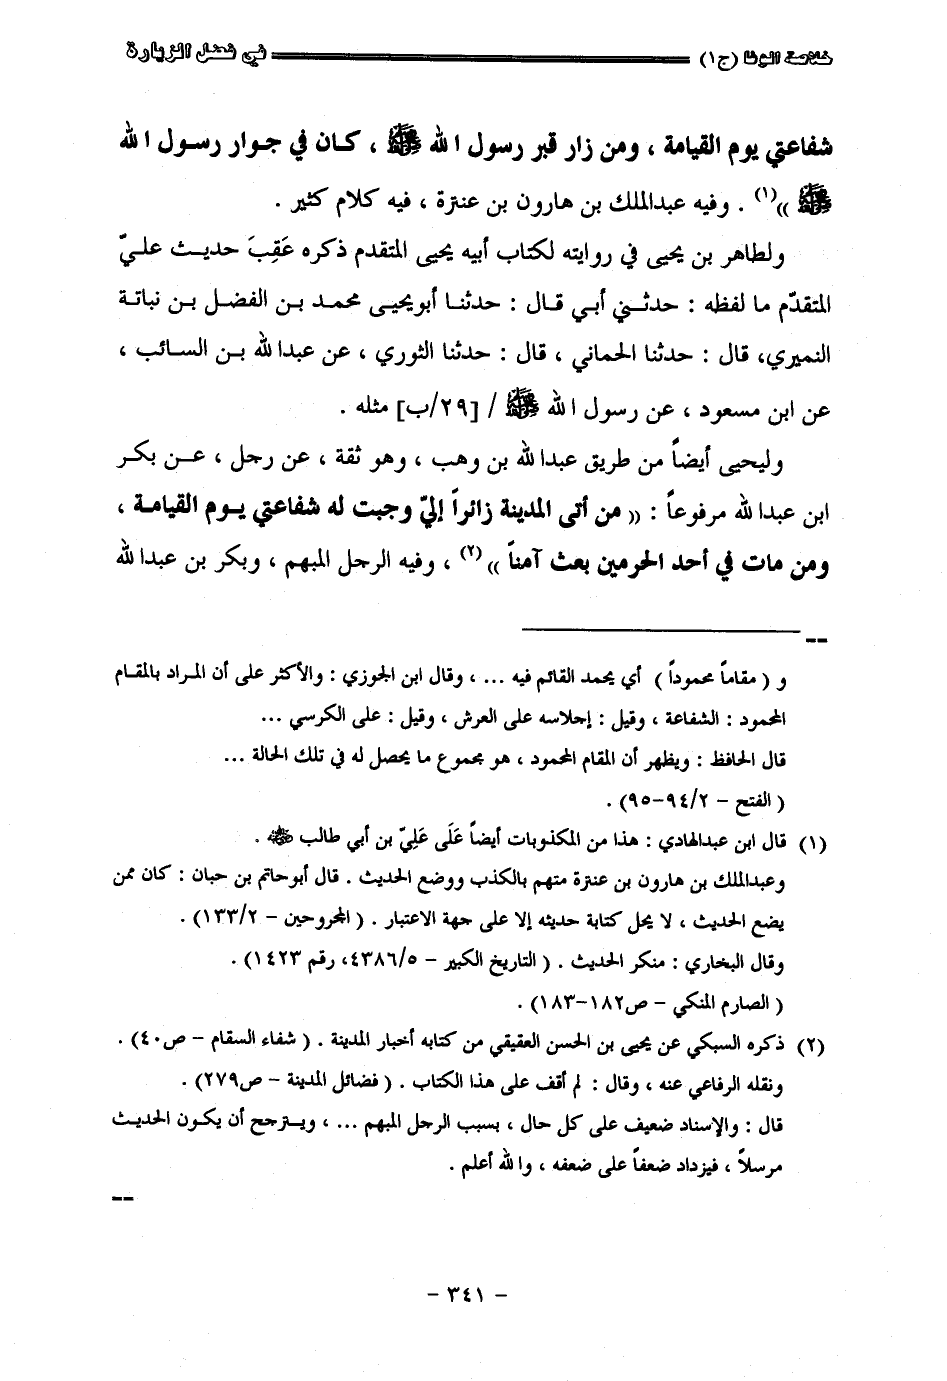 خلاصة الوفا (ج١) في فضل الزيارة
شفاعتي يوم القيامة ، ومن زار قبر رسول الله ﷺ ، كان في جوار رسول الله
ﷺ »(١) . وفيه عبدالملك بن هارون بن عنترة ، فيه كلام كثير .
ولطاهر بن يحيى في روايته لكتاب أبيه يحيى المتقدم ذكره عَقِبَ حديث عليّ
المتقدّم ما لفظه : حدثني أبي قال : حدثنا أبويحيى محمد بن الفضل بن نباتة
النميري، قال : حدثنا الحماني ، قال : حدثنا الثوري ، عن عبدالله بن السائب ،
عن ابن مسعود ، عن رسول الله ﷺ / [٢٩/ب] مثله .
وليحيى أيضاً من طريق عبدالله بن وهب ، وهو ثقة ، عن رجل ، عن بكر
ابن عبدالله مرفوعاً : « من أتى المدينة زائراً إليّ وجبت له شفاعتي يوم القيامة ،
ومن مات في أحد الحرمين بعث آمناً »(٢) ، وفيه الرجل المبهم ، وبكر بن عبدالله
__
و ( مقاماً محموداً ) أي يحمد القائم فيه ... ، وقال ابن الجوزي : والأكثر على أن المراد بالمقام
المحمود : الشفاعة ، وقيل : إجلاسه على العرش ، وقيل : على الكرسي ...
قال الحافظ : ويظهر أن المقام المحمود ، هو مجموع ما يحصل له في تلك الحالة ...
( الفتح – ٩٤/٢–٩٥) .
(١) قال ابن عبدالهادي : هذا من المكذوبات أيضاً عَلَى عَلِيّ بن أبي طالب ﷺ .
وعبدالملك بن هارون بن عنترة متهم بالكذب ووضع الحديث . قال أبوحاتم بن حبان : كان ممن
يضع الحديث ، لا يحل كتابة حديثه إلا على جهة الاعتبار . ( المجروحين – ١٣٣/٢) .
وقال البخاري : منكر الحديث . ( التاريخ الكبير – ٤٣٨٦/٥، رقم ١٤٢٣) .
( الصارم المنكي – ص١٨٢–١٨٣) .
(٢) ذكره السبكي عن يحيى بن الحسن العقيقي من كتابه أخبار المدينة . ( شفاء السقام – ص٤٠) .
ونقله الرفاعي عنه ، وقال : لم أقف على هذا الكتاب . ( فضائل المدينة – ص٢٧٩) .
قال : والإسناد ضعيف على كل حال ، بسبب الرجل المبهم ... ، ويترجح أن يكون الحديث
مرسلاً ، فيزداد ضعفاً على ضعفه ، والله أعلم .
__
– ٣٤١ –